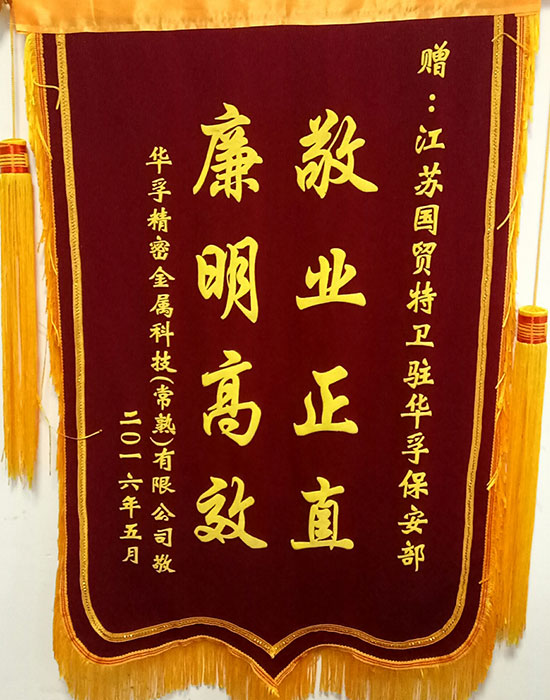 赠：江苏国贸特卫驻华孚保安部
敬业正直
廉明高效
华孚精密金属科技(常熟)有限公司敬
二〇一六年五月